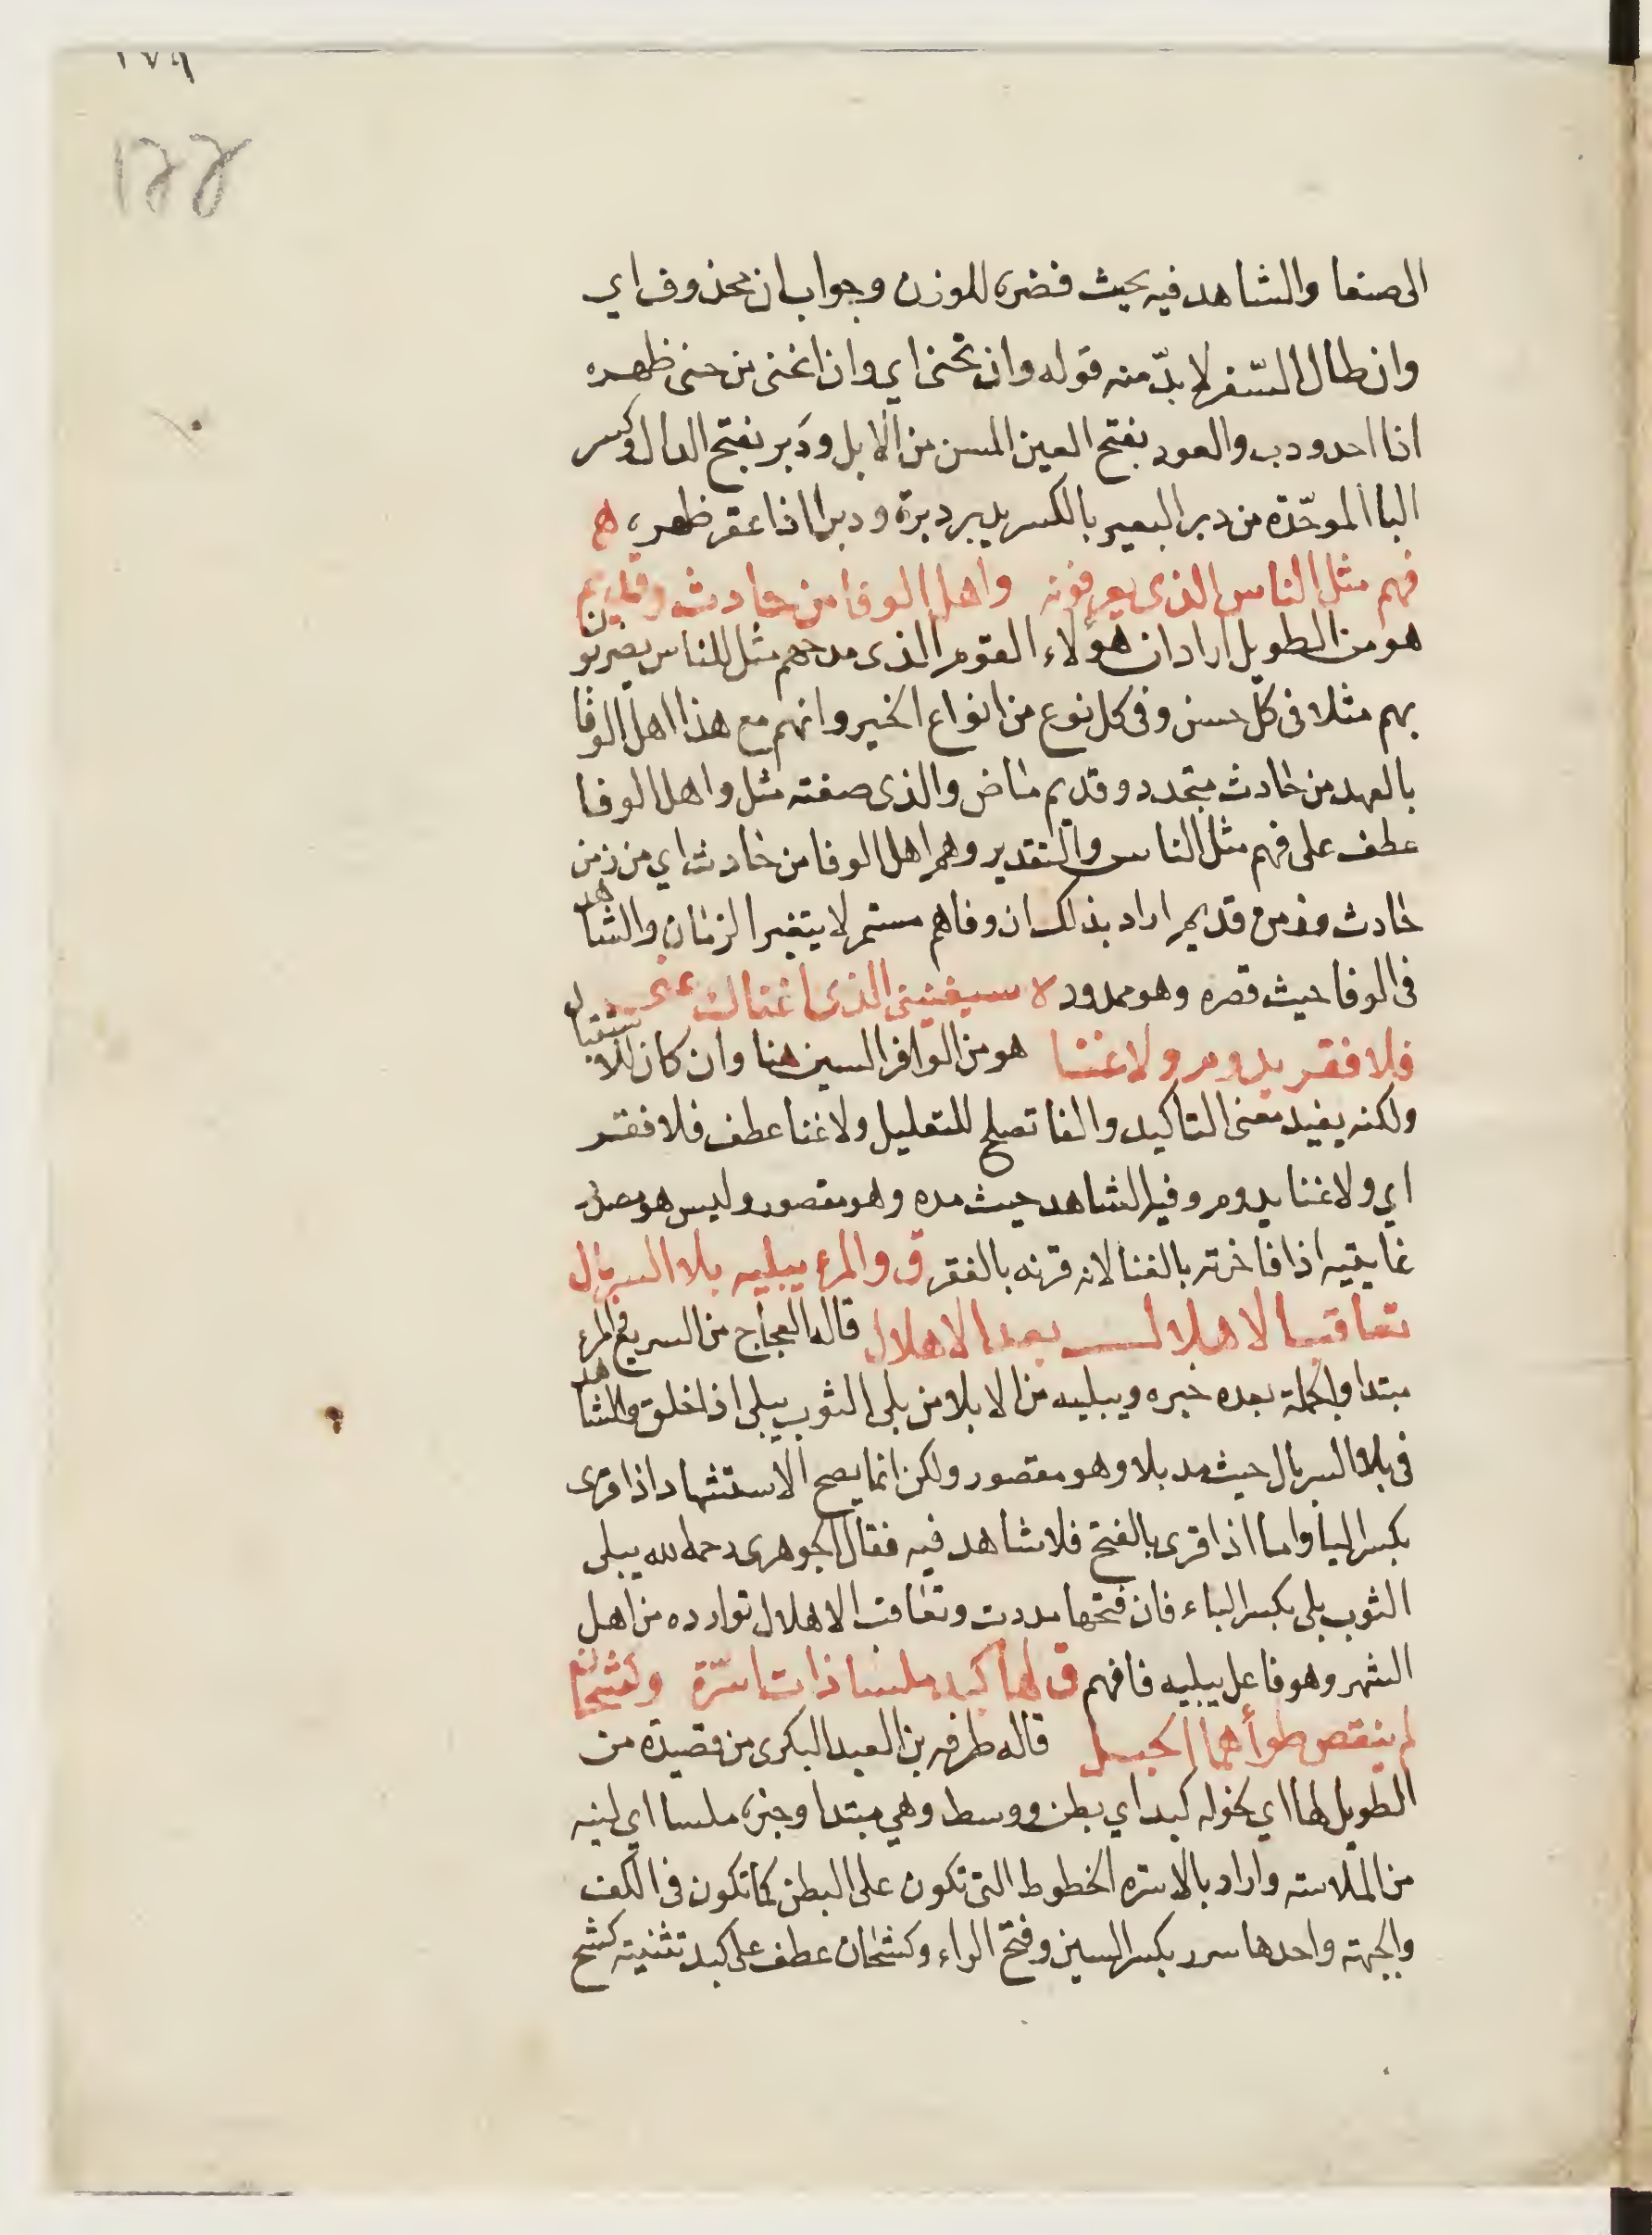 ١٧٩
١٢٢
الى صنعا والشاهد فيه بحيث قصره للوزن وجواب ان محذوف اي
وان طال السّفر لا بدّ منه قوله وان تحنى اي وان انحنى من حنى ظهره
اذا احدودب والعود بفتح العين المسن من الابل ودَبر بفتح الدال وكسر
البا الموحّدة من دبر البعير بالكسر يدبر دبرة ودبرا اذا عقر ظهره هـ
فهم مثل الناس الذى يعرفونه واهل الوفا من حادث وقديم
هو من الطويل اراد ان هؤلاء القوم الذى مدحهم مثل للناس يضربون
بهم مثلا فى كل حسن وفى كل نوع من انواع الخير وانهم مع هذا اهل الوفا
بالعهد من حادث متجدد وقديم ماض والذى صفته مثل واهل الوفا
عطف على فهم مثل الناس والتقدير وهم اهل الوفا من حادث اي من زمن
حادث ومن زمن قديم اراد بذلك ان وفاهم مستمر لا يتغير الزمان والشاهد
فى الوفا حيث قصره وهو ممدود ه سيغنينى الذى اغناك عنى
فلا فقر يدوم ولا غنا هو من الوافر السين هنا وان كان للاستقبال
ولكنه يفيد معنى التاكيد والفا تصلح للتعليل ولا غنا عطف فلا فقر
اي ولا غنا يدوم وفيه الشاهد حيث مده وهو مقصور وليس هو مصدر
غانيته اذا فاخرته بالغنا لانه قرنه بالفقر ق والمرء يبليه بلا السربال
تعاقب الاهلال بعد الاهلال قاله العجاج من السريع والمرء
مبتدا والجملة بعده خبره ويبليه من الابلا من بلى الثوب يبلى اذا خلق والشاهد
فى بلا السربال حيث مد بلا وهو مقصور ولكن انما يصح الاستشهاد اذا قرى
بكسر البا واما اذا قرى بالفتح فلا شاهد فيه فقال الجوهرى رحمه الله يبلى
الثوب بلى بكسر الباء فان فتحها مددت وتعاقب الاهلال توارده من اهل
الشهر وهو فاعل يبليه فافهم ق لها كبد ملسا ذات اسرّة وكشحان
لم ينقص طوأهما الحبل قاله طرفه بن العبد البكرى من قصيدة من
الطويل لها اي لخوله كبد اي بطن ووسط وهي مبتدا وخبره ملسا اي لينه
من الملاسته واراد بالاسرّه الخطوط التى تكون على البطن كما تكون فى الكف
والجبهته واحدها سرر بكسر السين وفتح الراء وكشحان عطف على كبد تثنيته كشح